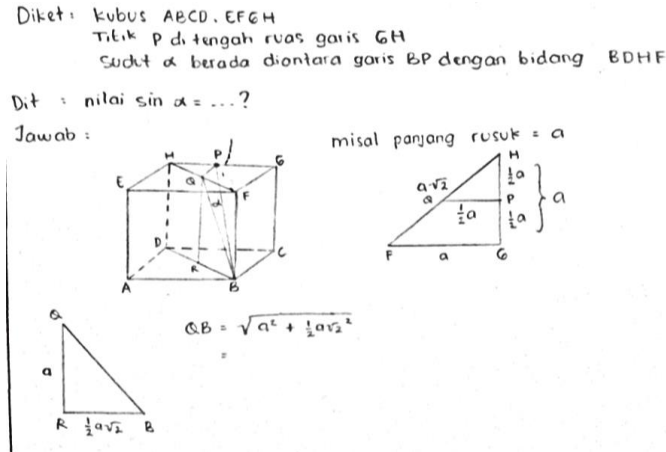 Diket : kubus ABCD.EFGH
Titik P di tengah ruas garis GH
Sudut α berada diantara garis BP dengan bidang BDHF
Dit : nilai sin α = ...?
Jawab :
misal panjang rusuk = a
H
P
G
E
Q
F
α
D
C
R
A
B
H
½a
a√2
Q
P
a
½a
½a
F
a
G
Q
QB = √a² + ½a√2²
=
a
R
½a√2
B